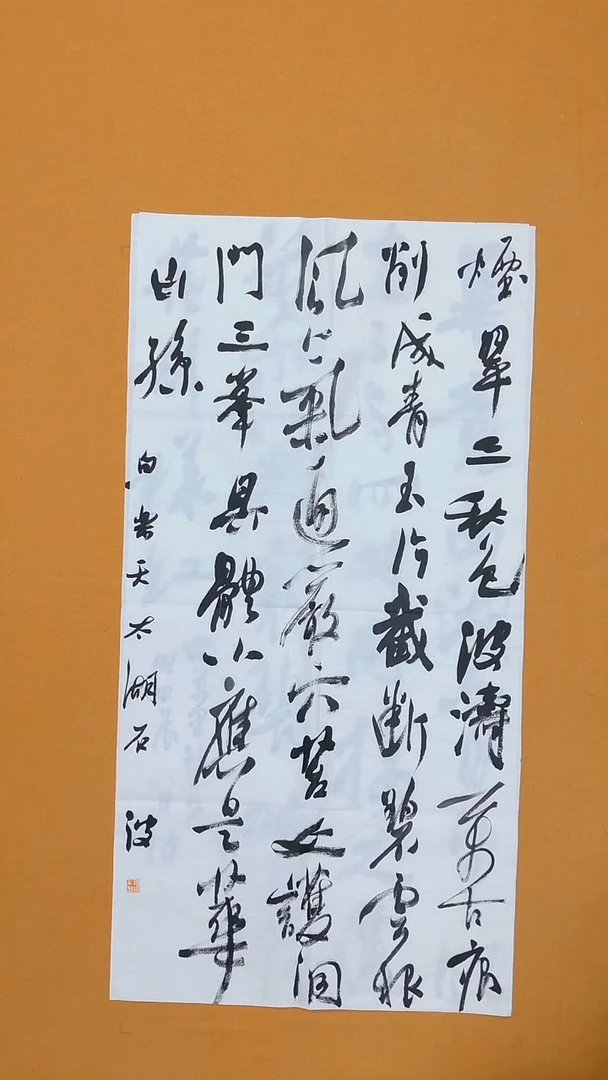 煙翠三秋色波濤萬古痕
削成青玉片截斷碧雲根
風氣通巖穴苔文護洞
門三峯具體小應是華
山孫 白樂天太湖石 波